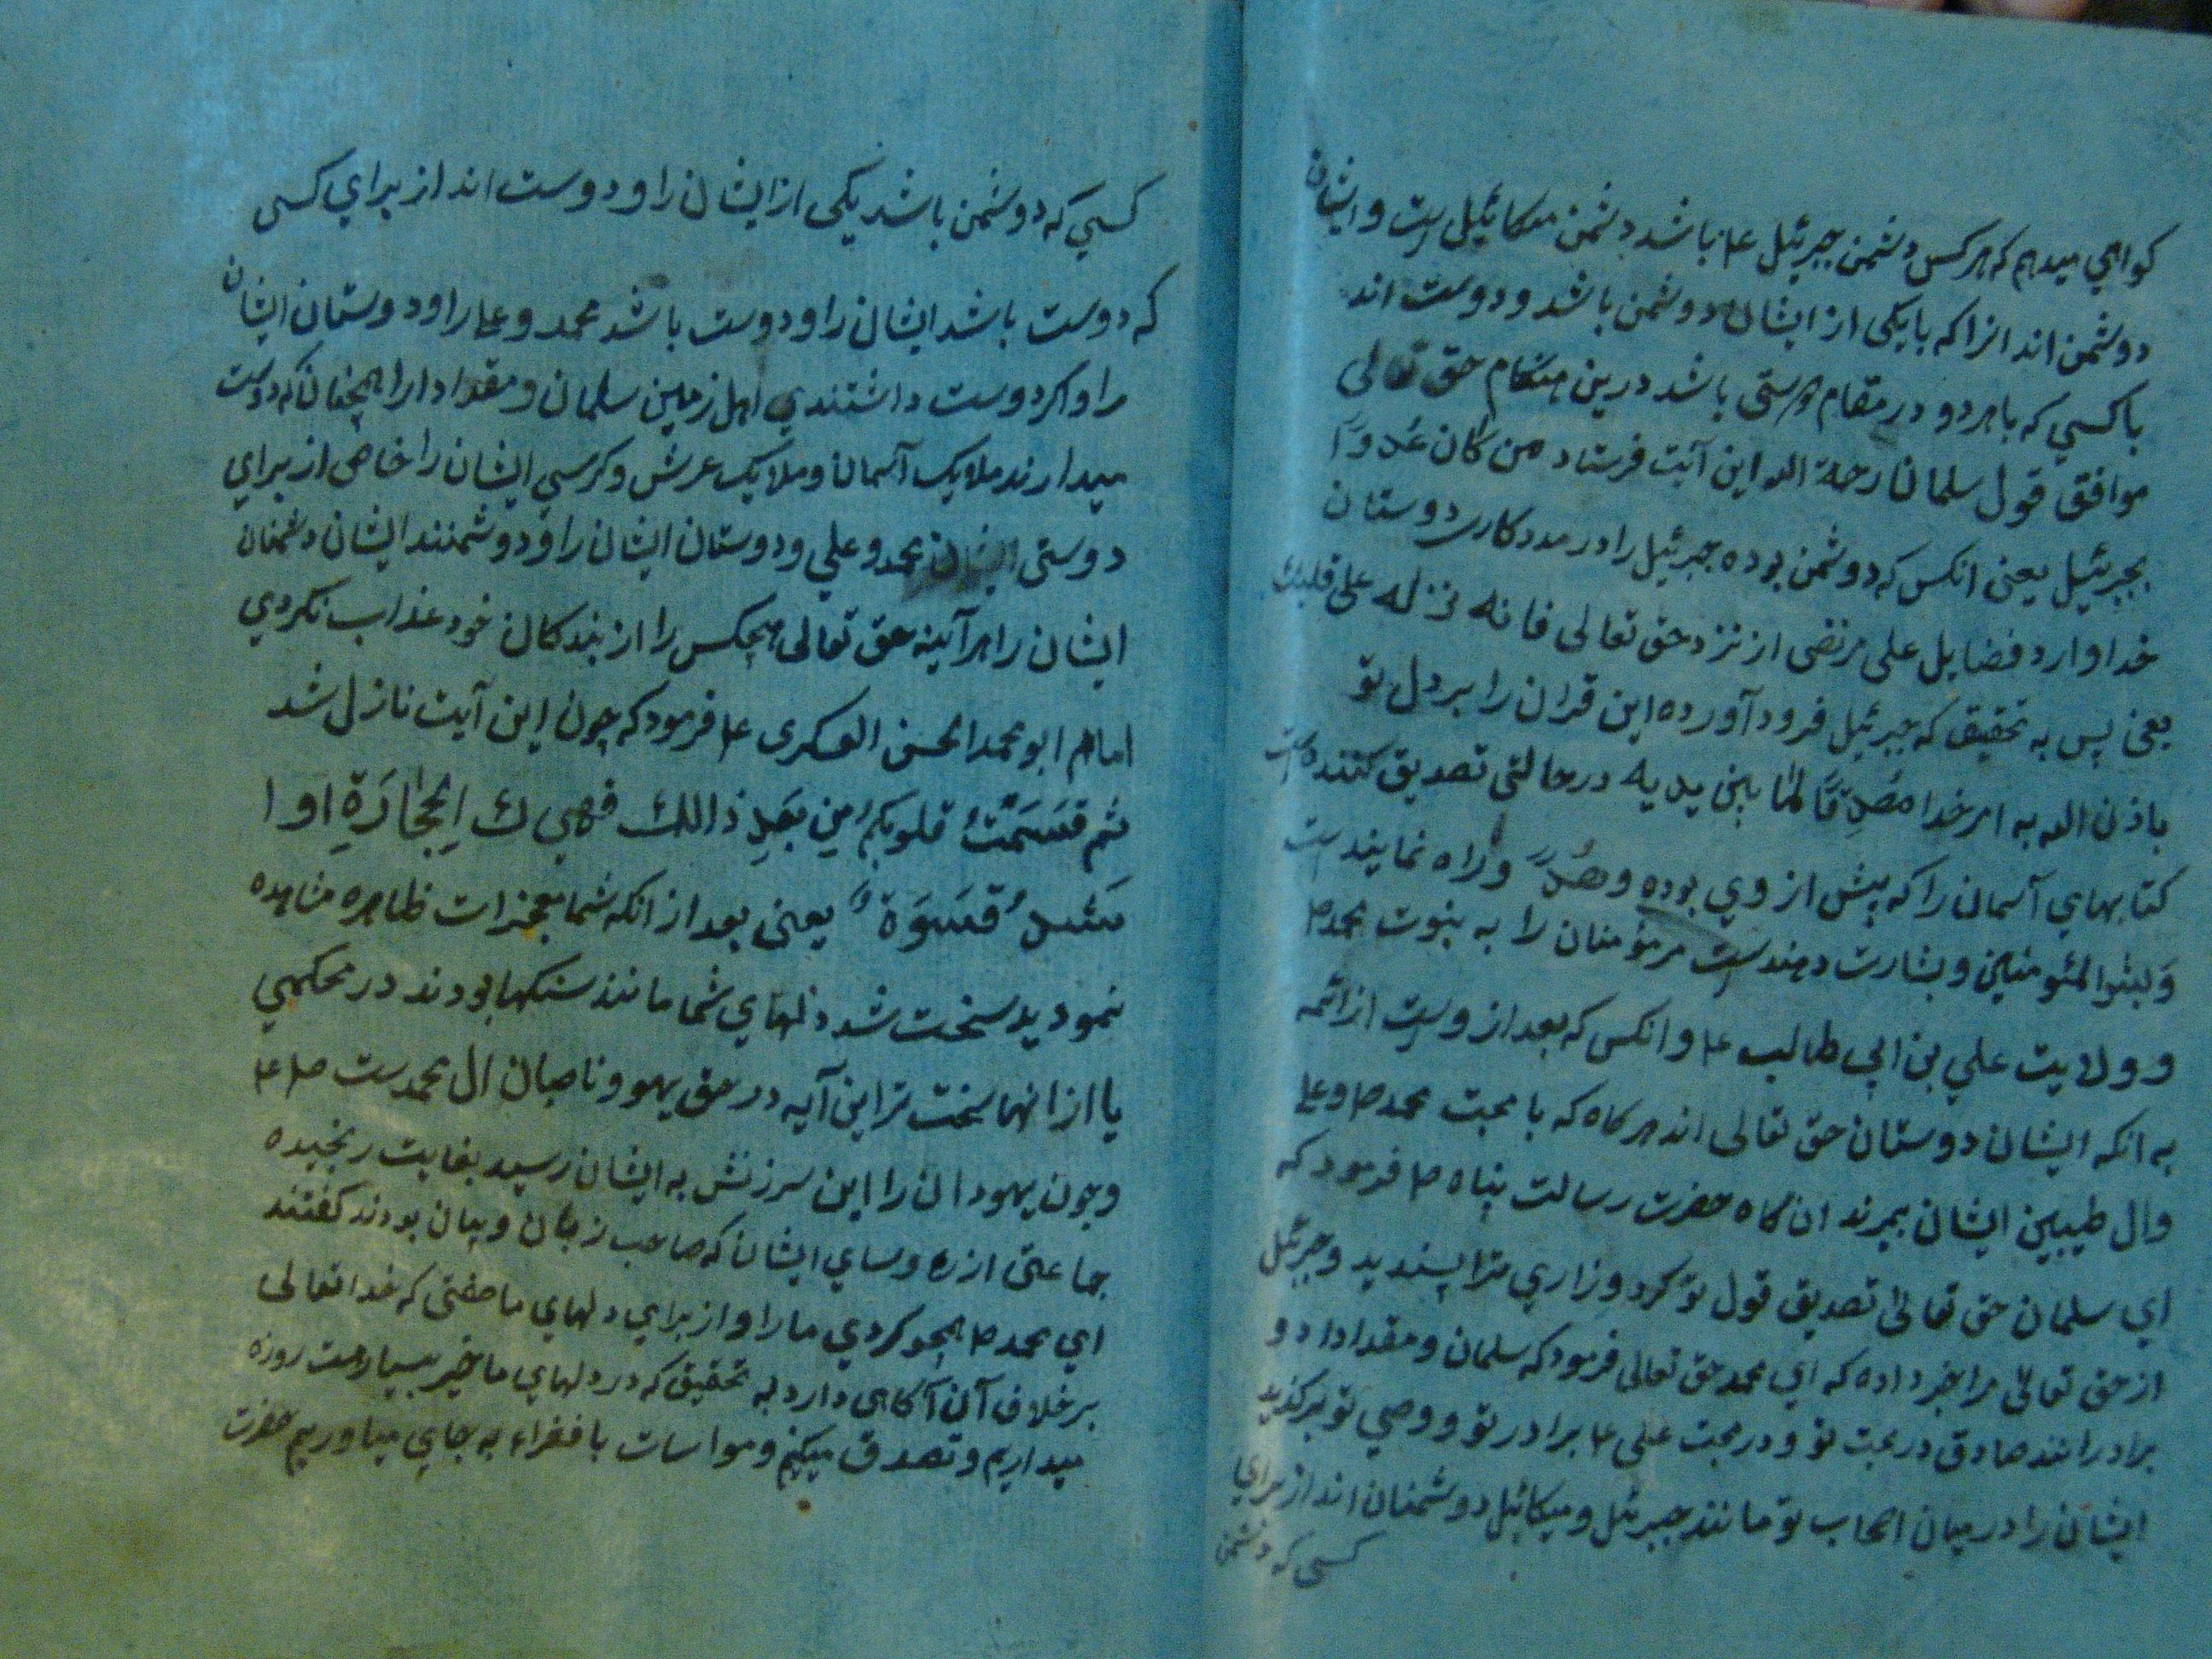 كواهي ميدهم كه هركس دشمن جبرئيل ع باشد دشمن ميكائيل است و ايشان
دوشمن اند انرا كه با يكى از ايشان دوشمن باشد و دوست اند
با كسي كه با هردو در مقام دوستى باشد درين هنكام حق تعالى
موافق قول سلمان رحمة الله اين آيت فرستاد من كان عدوًا
بجبرئيل يعنى انكس كه دوشمن بوده جبرئيل را در مددكارى دوستان
خدا وارد فضايل على مرتضى از نزد حق تعالى فانه نزله على قلبك
يعنى پس به تحقيق كه جبرئيل فرود آورده اين قران را بر دل تو
باذن الله به امر خدا مصدقًا لما بين يديه در حالتى تصديق كننده است
كتابهاي آسمان را كه پيش از وي بوده و هدًى و راه نمايندست
و بشرا لمئومنين و بشارت دهندست مر مؤمنان را به نبوت محمد ص
و ولايت علي بن ابي طالب ع و انكس كه بعد از وست از ائمه
به انكه ايشان دوستان حق تعالى اند هركاه كه با محبت محمد ص و على
وال طيبين ايشان بميرند ان كاه حضرت رسالت پناه ص فرمود كه
اي سلمان حق تعالى تصديق قول تو كرد و زاري ترا پسنديد و جبرئيل
از حق تعالى مرا خبر داده كه اي محمد حق تعالى فرمود كه سلمان و مقداد دو
برادرانند صادق در محبت تو و در محبت على ع برادر تو و وصي تو بركزيد
ايشان را در ميان اصحاب تو مانند جبرئيل و ميكائيل دوشمنان اند از براي
كسى كه دشمن
كسي كه دوشمن باشد يكى از ايشان را و دوست اند از براي كسى
كه دوست باشد ايشان را و دوست باشد محمد و على را و دوستان ايشان
را و اكر دوست داشتندي اهل زمين سلمان و مقداد را همچنان كه دوست
ميدارند ملايك آسمان و ملايك عرش و كرسي ايشان را خاص از براي
دوستى ايشان محمد و علي و دوستان ايشان را و دوشمنند ايشان دشمنان
ايشان را هر آينه حق تعالى هيچكس را از بندكان خود عذاب نكردي
امام ابو محمد الحسن العسكرى ع فرمود كه چون اين آيت نازل شد
ثم قسمت قلوبكم من بعد ذالك فهي ك الحجارة او ا
قسوة يعنى بعد از انكه شما معجزات ظاهره مشاهده
نموديد سخت شد دلهاي شما مانند سنكها بودند در محكمي
يا از انها سخت تر اين آيه در حق يهود و ناصبان ال محمدست ص ع
و چون يهودان را اين سرزنش به ايشان رسيد بغايت رنجيده
جماعتى از روساي ايشان كه صاحب زبان و بيان بودند كفتند
اي محمد ص هجو كردي ما را و از براي دلهاي ما صفتى كه خدا تعالى
بر خلاف آن آكاهى دارد به تحقيق كه در دلهاي ما خير بسيارست روزه
ميداريم و تصدق ميكنم و مواسات با فقراء به جاي مياوريم حضرت